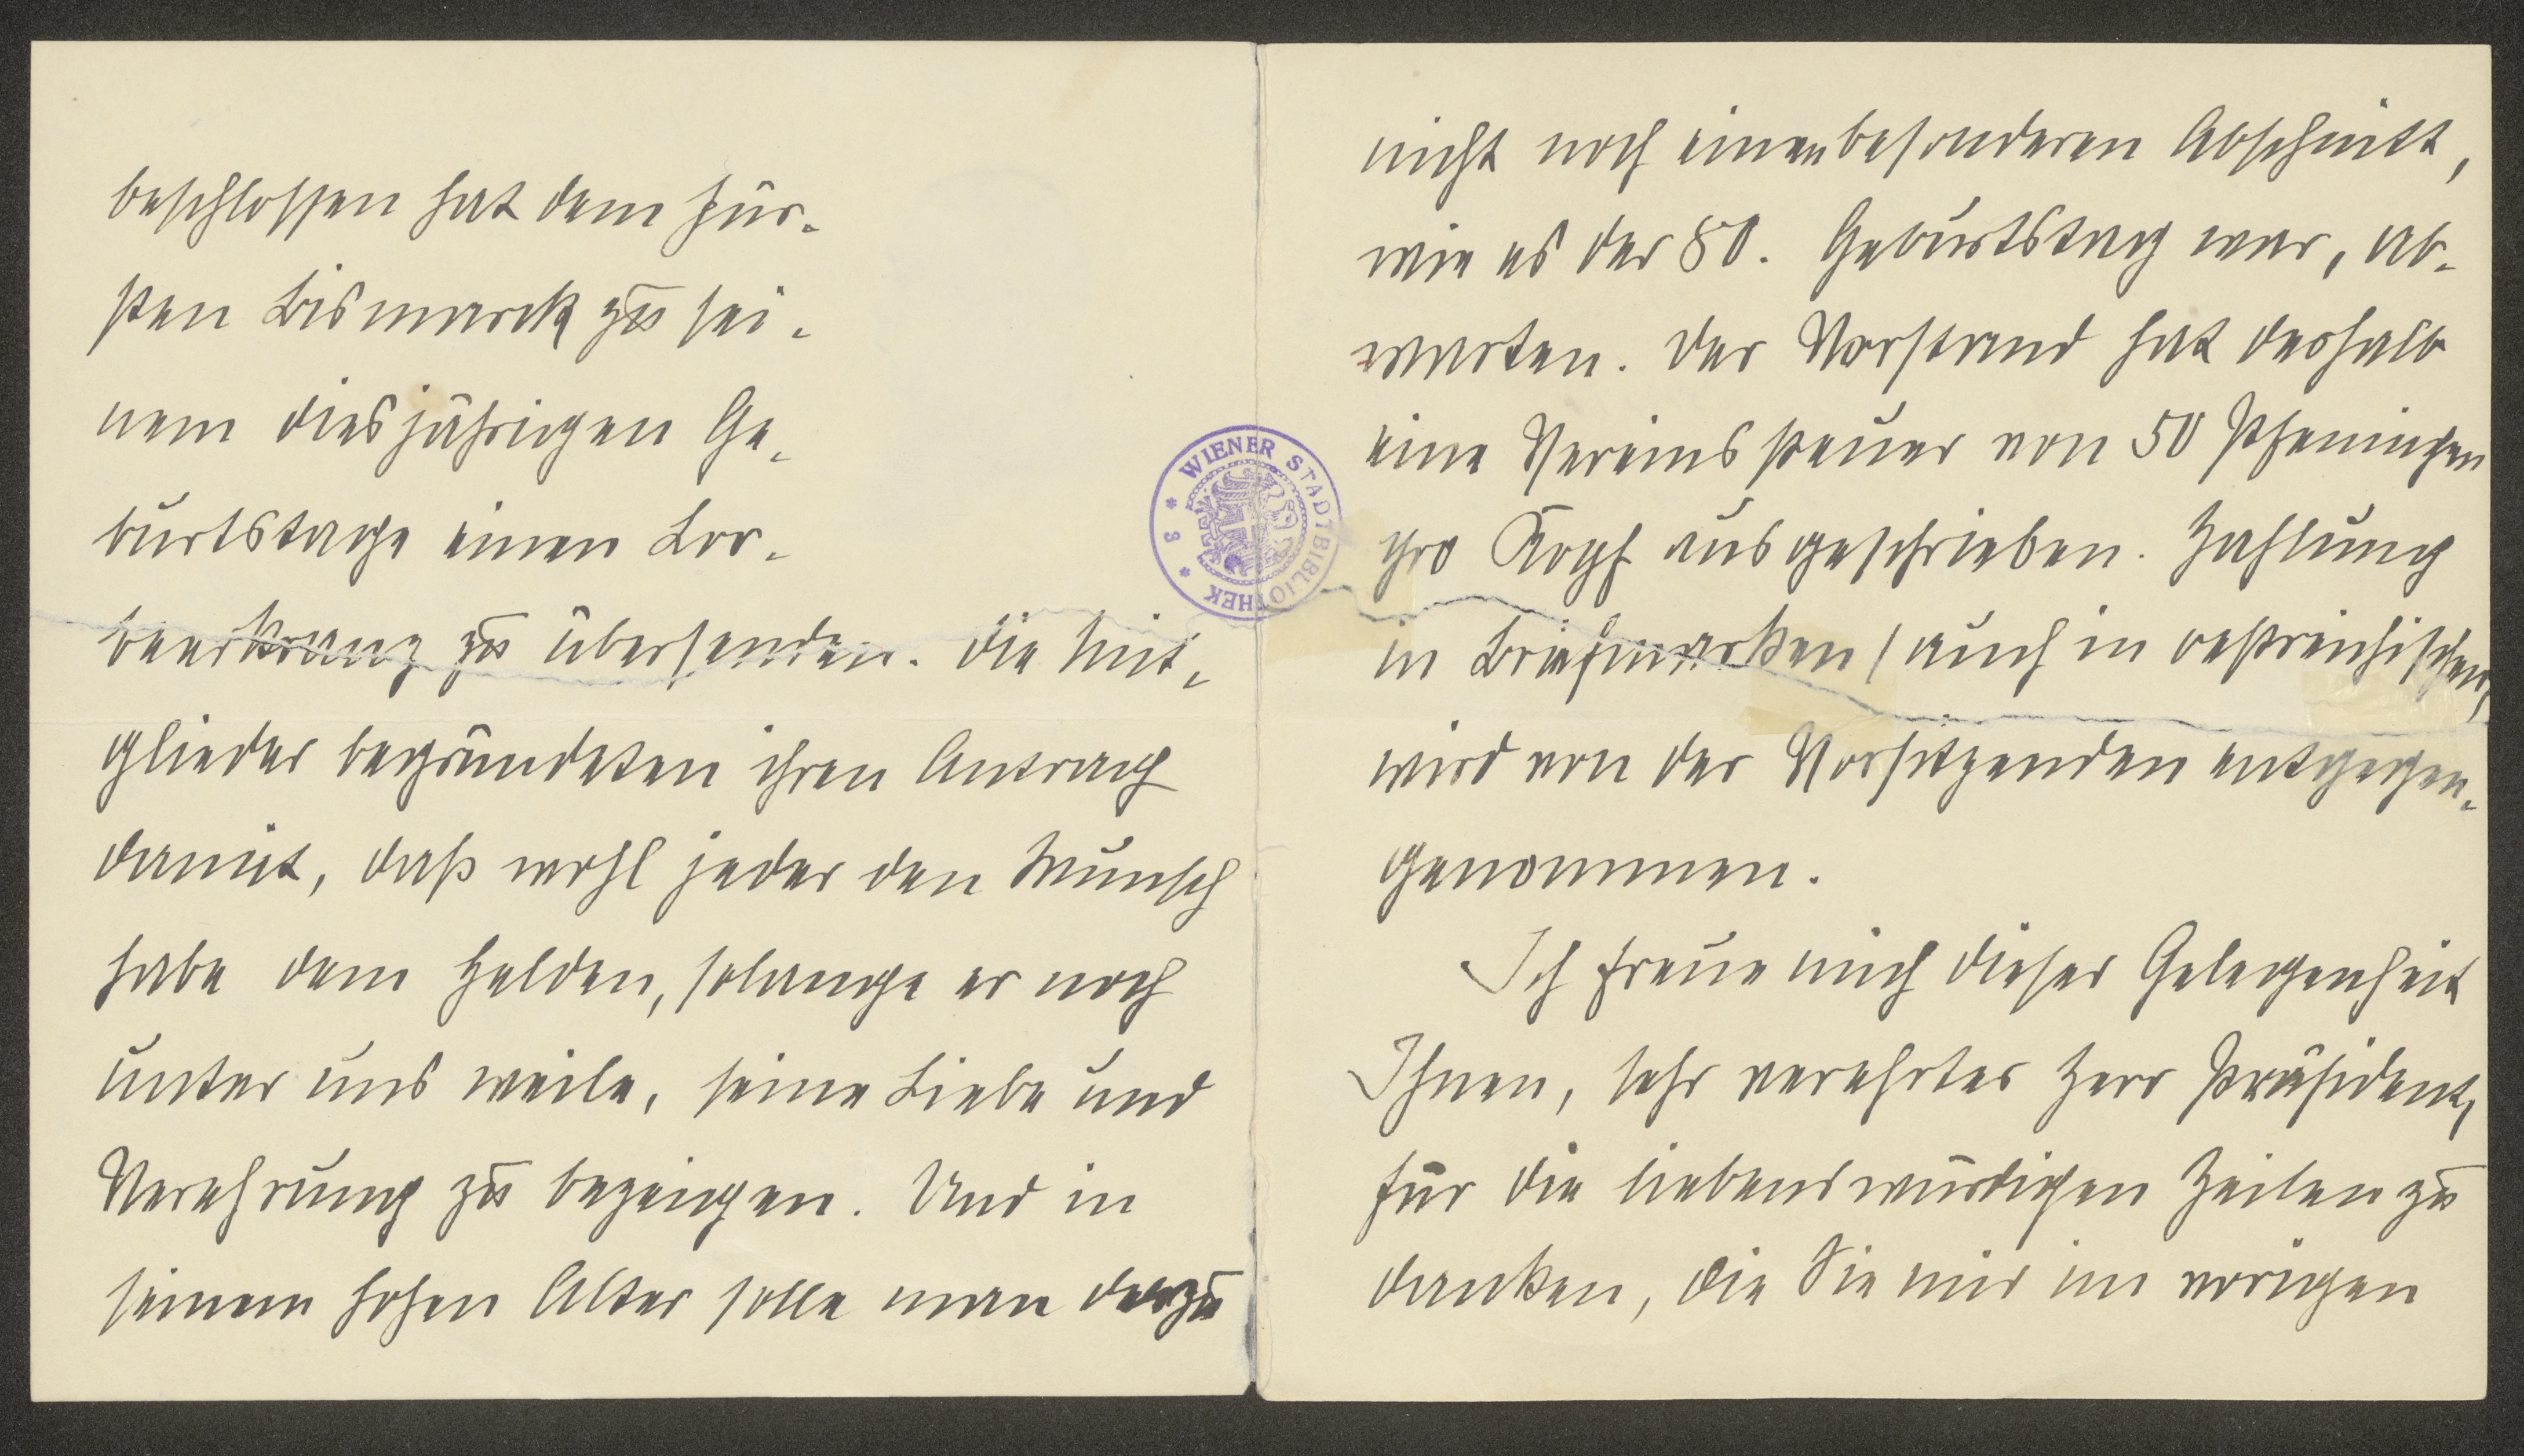 beschlossen hat dem Für-
sten Bismarck zu sei-
nem diesjährigen Ge-
burtstage einen Lor-
beerkranz zu übersenden. Die Mit-
glieder begründeten ihren Antrag
damit, daß wohl jeder den Wunsch
habe dem Helden, solange er noch
unter uns weile, seine Liebe und
Verehrung zu bezeigen. Und in
seinem hohen Alter solle man dazu
nicht noch einen besonderen Abschnitt,
wie es der 80. Geburtstag war, ab-
warten. Der Vorstand hat deshalb
eine Vereinssteuer von 50 Pfennigen
pro Kopf ausgeschrieben. Zahlung
in Briefmarken (auch in oestreichischen)
wird von der Vorsitzenden entgegen-
genommen.
Ich freue mich dieser Gelegenheit
Ihnen, sehr verehrter Herr Präsident,
für die liebenswürdigen Zeilen zu
danken, die Sie mir im vorigen
* WIENER STADTBIBLIOTHEK * 3